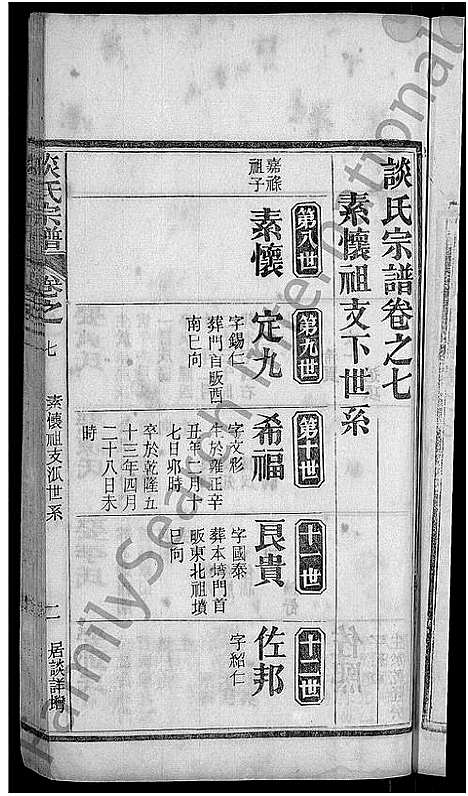 談氏宗譜卷之七
素懷祖支下世系
第八世
素懷
嘉祿
祖子
第九世
定九
字錫仁
葬門首畈酉
南巳向
第十世
希福
字文彩
生於雍正辛
丑年二月十
七日卯時
卒於乾隆五
十三年四月
二十八日未
時
十一世
艮貴
字國泰
葬本塆門首
畈東北祖墳
巳向
十二世
佐邦
字紹仁
談氏宗譜
卷之
七
素懷祖支派世系
二
居談詳塆
FamilySearch International